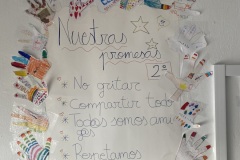 Nuestras
promesas
2º
* No gritar
* Compartir todo
* Todas somos ami
gas
* Respetamos